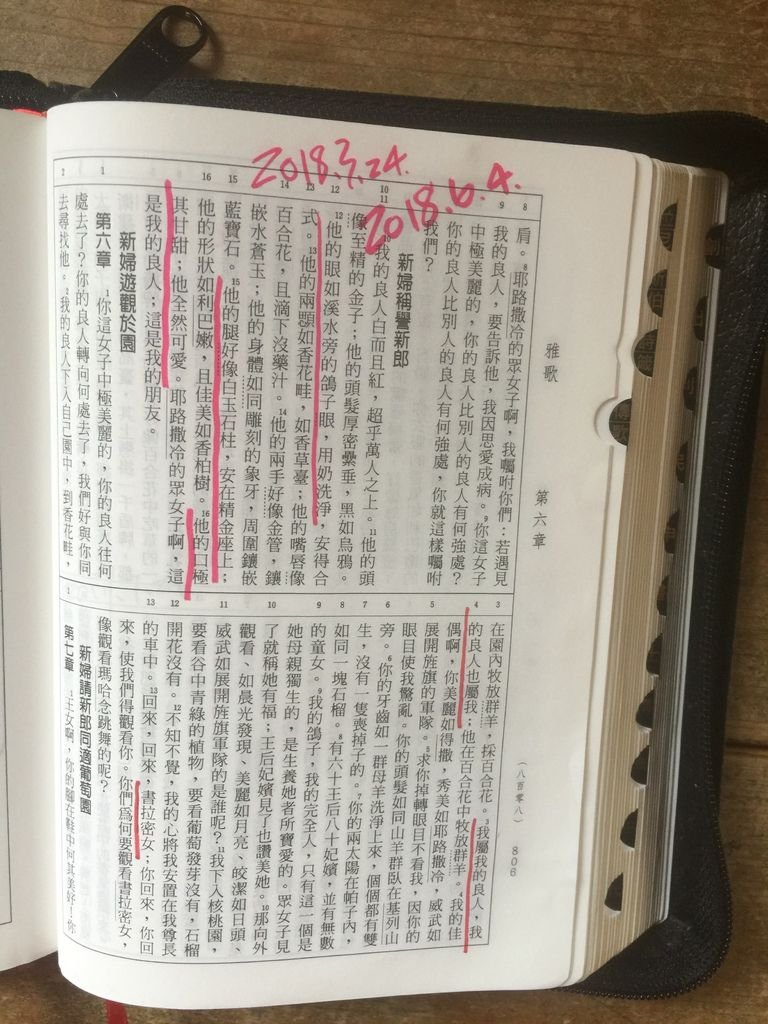 2018.3.24.
2018.6.4.
雅歌
第六章
(八百零八)
肩。8耶路撒冷的眾女子啊，我囑咐你們：若遇見
我的良人，要告訴他，我因思愛成病。9你這女子
中極美麗的，你的良人比別人的良人有何強處？
你的良人比別人的良人有何強處，你就這樣囑咐
我們？
新婦稱譽新郎
10我的良人白而且紅，超乎萬人之上。11他的頭
像至精的金子；他的頭髮厚密纍垂，黑如烏鴉。
12他的眼如溪水旁的鴿子眼，用奶洗淨，安得合
式。13他的兩顋如香花畦，如香草臺；他的嘴唇像
百合花，且滴下沒藥汁。14他的兩手好像金管，鑲
嵌水蒼玉；他的身體如同雕刻的象牙，周圍鑲嵌
藍寶石。15他的腿好像白玉石柱，安在精金座上；
他的形狀如利巴嫩，且佳美如香柏樹。16他的口極
其甘甜；他全然可愛。耶路撒冷的眾女子啊，這
是我的良人；這是我的朋友。
新婦遊觀於園
第六章 1你這女子中極美麗的，你的良人往何
處去了？你的良人轉向何處去了，我們好與你同
去尋找他。2我的良人下入自己園中，到香花畦，
在園內牧放群羊，採百合花。3我屬我的良人，我
的良人也屬我；他在百合花中牧放群羊。4我的佳
偶啊，你美麗如得撒，秀美如耶路撒冷，威武如
展開旌旗的軍隊。5求你掉轉眼目不看我，因你的
眼目使我驚亂。你的頭髮如同山羊群臥在基列山
旁。6你的牙齒如一群母羊洗淨上來，個個都有雙
生，沒有一隻喪掉子的。7你的兩太陽在帕子內，
如同一塊石榴。8有六十王后八十妃嬪，並有無數
的童女。9我的鴿子，我的完全人，只有這一個是
她母親獨生的，是生養她者所寶愛的。眾女子見
了就稱她有福；王后妃嬪見了也讚美她。10那向外
觀看、如晨光發現、美麗如月亮、皎潔如日頭、
威武如展開旌旗軍隊的是誰呢？11我下入核桃園，
要看谷中青綠的植物，要看葡萄發芽沒有，石榴
開花沒有。12不知不覺，我的心將我安置在我尊長
的車中。13回來，回來，書拉密女；你回來，你回
來，使我們得觀看你。你們為何要觀看書拉密女，
像觀看瑪哈念跳舞的呢？
新婦請新郎同適葡萄園
第七章 1王女啊，你的腳在鞋中何其美好！你